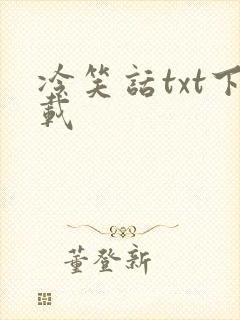 冷笑話txt下
載
董登新